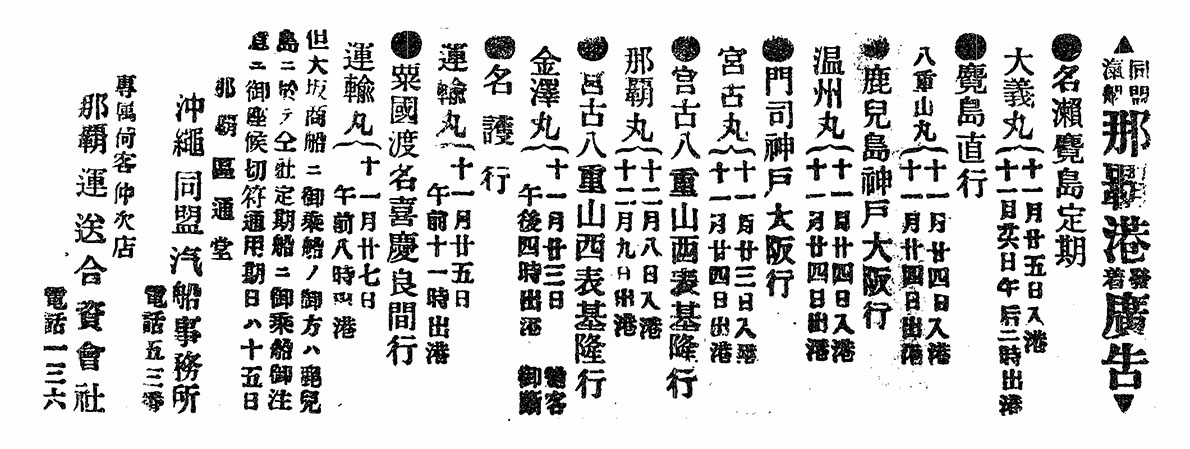 ▲同盟汽船那覇港發着廣告▼
●名瀬鹿島定期
大義丸 十一月廿五日入港
十一月廿六日午后三時出港
●鹿島直行
八重山丸 十一月廿四日入港
十一月廿四日出港
●鹿兒島神戸大阪行
温州丸 十一月廿四日入港
十一月廿四日出港
●門司神戸大阪行
宮古丸 十一月廿三日入港
十一月廿四日出港
●宮古八重山西表基隆行
那覇丸 十二月八日入港
十二月九日出港
●宮古八重山西表基隆行
金澤丸 十一月廿三日
午後四時出港
客
御斷
●名護行
運輸丸 十一月廿五日
午前十一時出港
●粟國渡名喜慶良間行
運輸丸 十一月廿七日
午前八時出港
但大坂商船ニ御乗船ノ御方ハ鹿兒
島ニ於テ仝社定期船ニ御乗船御注
意ニ御座候切符通用期日ハ十五日
那覇區通堂
沖繩同盟汽船事務所
電話五三番
專属荷客仲次店
那覇運送合資會社
電話一三六